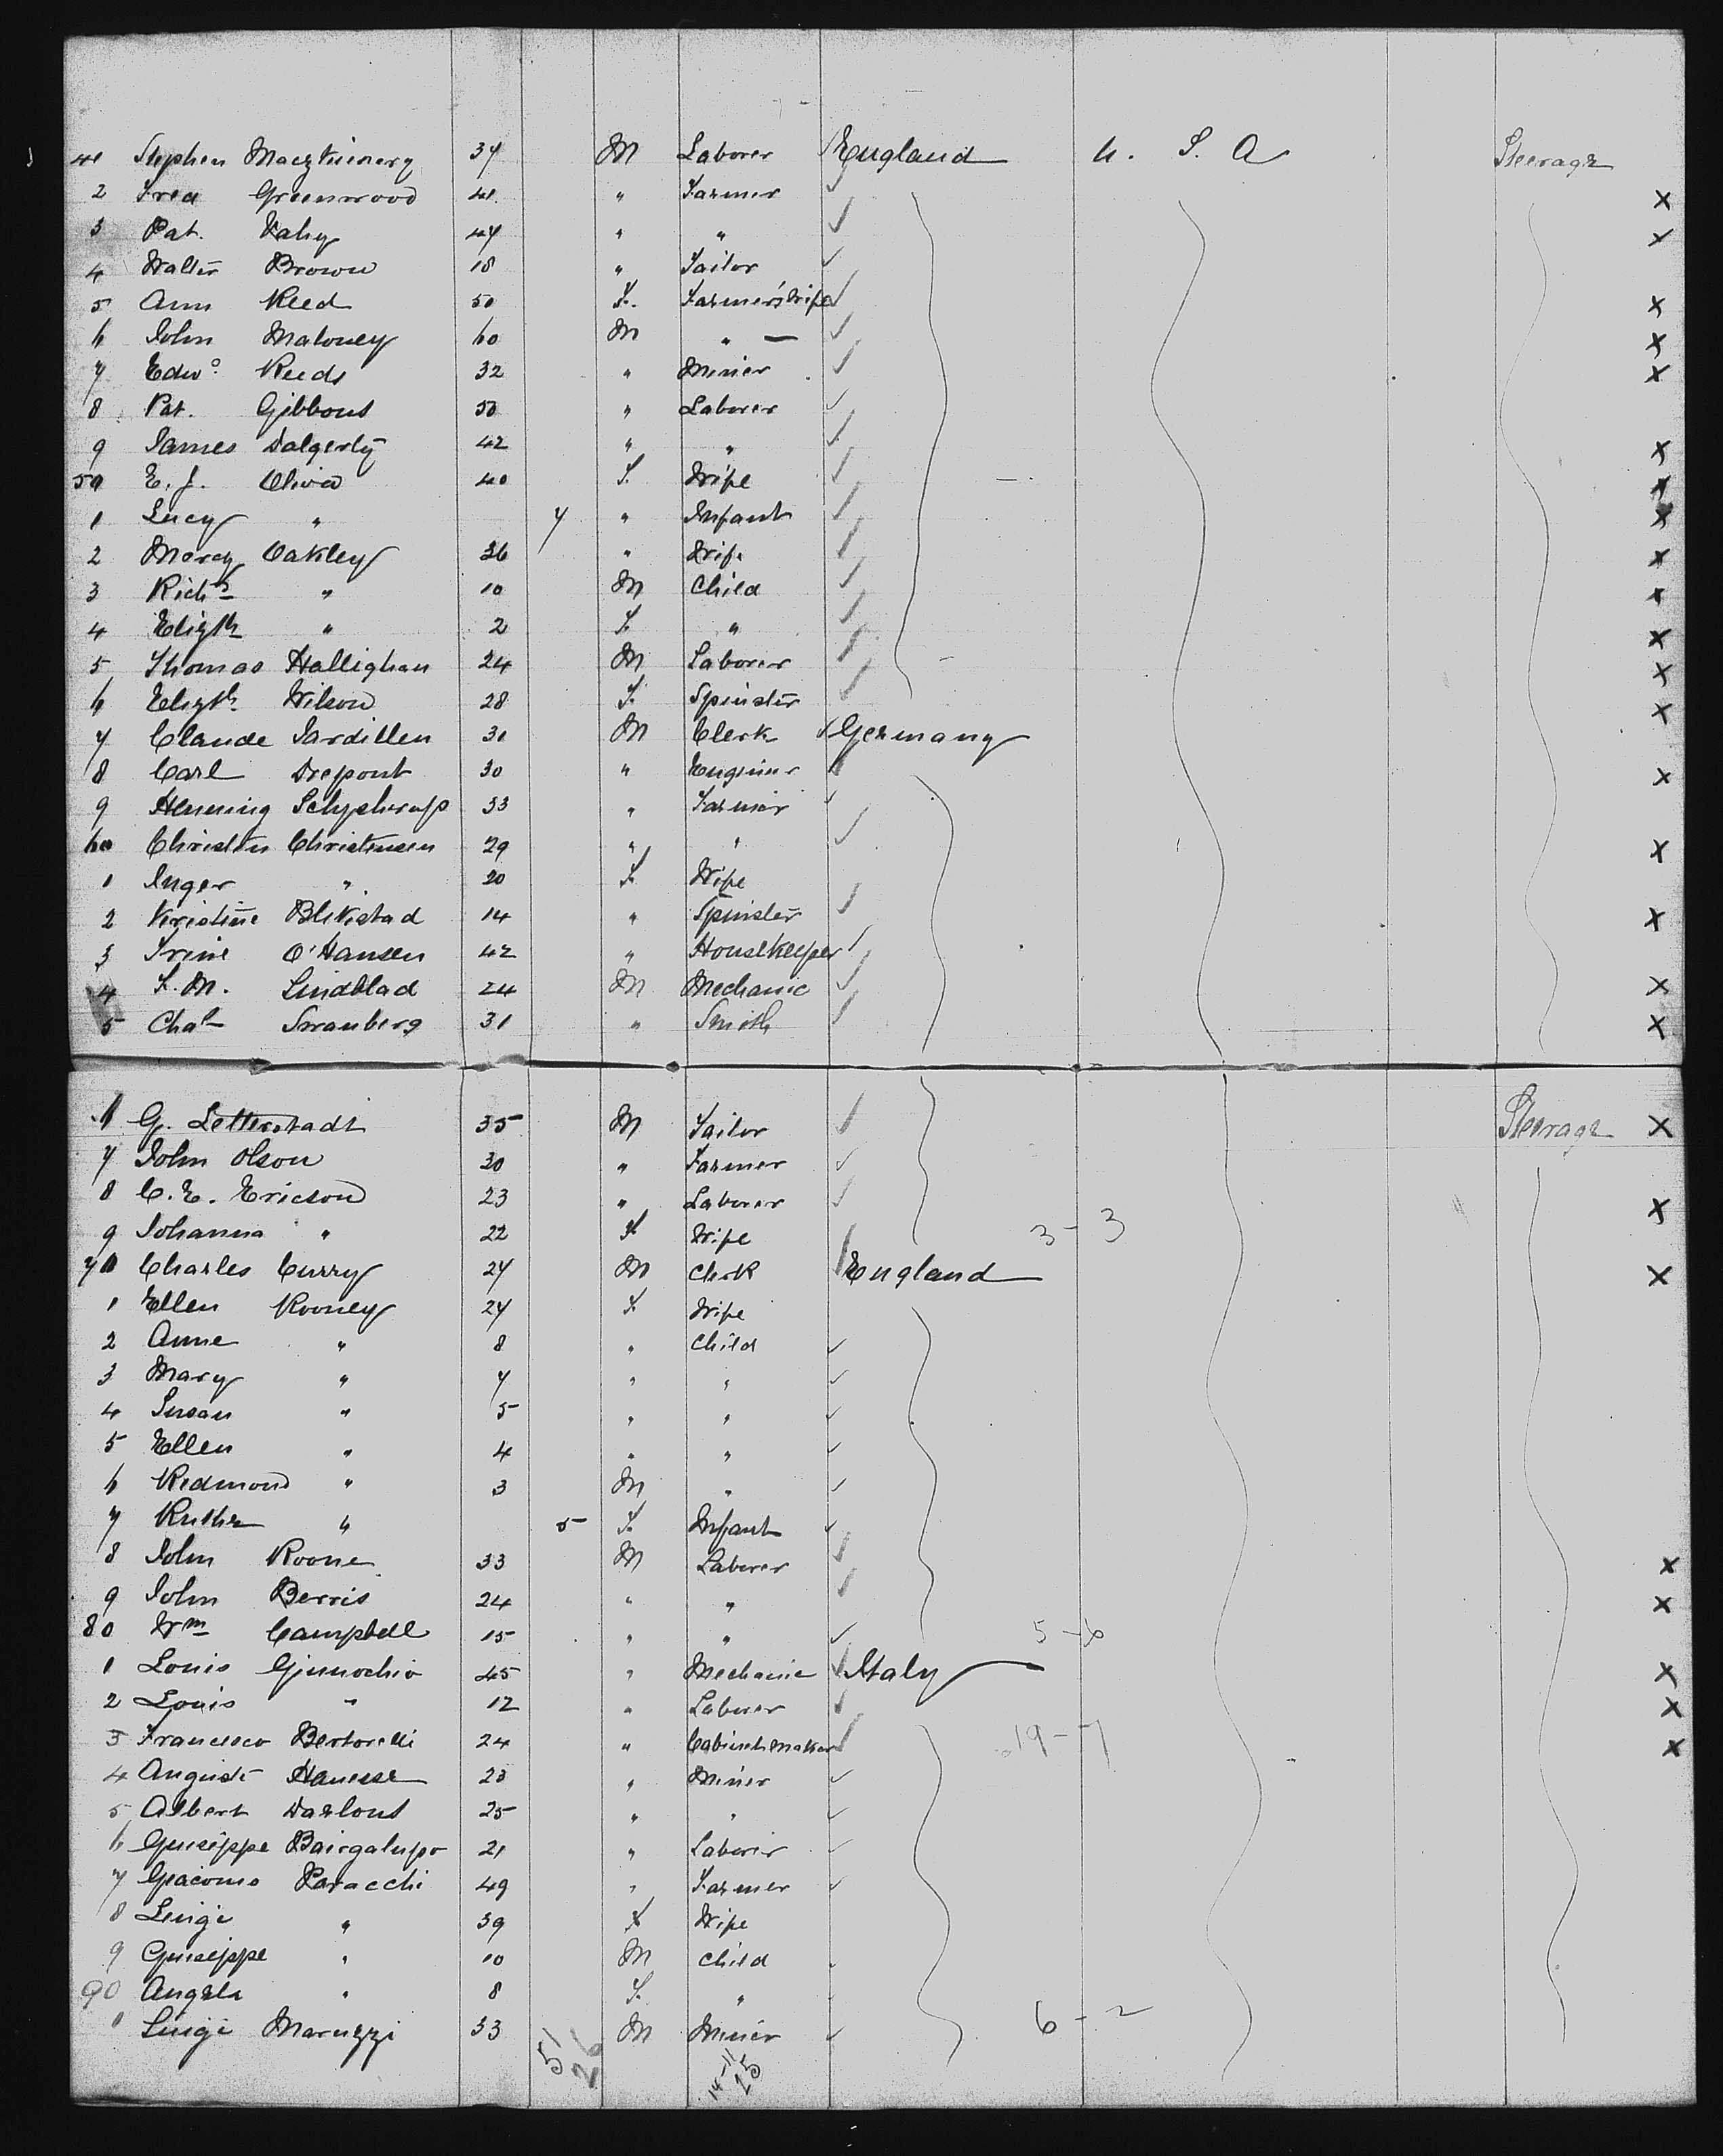 41 Stephen 37 M Laborer England U. S. A Steerage
2 Fred Greenwood 41 " Farmer ✓ X
3 Pat. Fahy 47 " " ✓ X
4 Walter Brown 18 " Tailor ✓
5 Ann Reed 50 F. Farmer's Wife ✓ X
6 John Maloney 60 M " — ✓ X
7 Edwd Reeds 32 " Miner ✓ X
8 Pat. Gibbons 50 " Laborer ✓
9 James Dalgerty 42 " " ✓ X
50 E. J. Oliva 40 F. Wife ✓ X
1 Lucy " 7 " Infant ✓ X
2 Mercy Oakley 36 " Wife ✓ X
3 Richd " 10 M Child ✓ X
4 Elizth " 2 F. " ✓ X
5 Thomas Hallighan 24 M Laborer ✓ X
6 Elizth Wilson 28 F. Spinster ✓ X
7 Claude Jardillen 31 M Clerk Germany
8 Carl Drepont 30 " Engineer ✓ X
9 Henning 33 " Farmer ✓
60 Christen Christensen 29 " " ✓ X
1 Inger " 20 F Wife
2 Kristine Blikstad 14 " Spinster ✓ X
3 Trine O'Hansen 42 " Housekeeper ✓
4 F. M. Lindblad 24 M Mechanic ✓ X
5 Chas Swanberg 31 " Smith ✓ X
6 G. Letterstadt 35 M Tailor ✓ Steerage X
7 John Olson 30 " Farmer ✓
8 C. E. Ericson 23 " Laborer ✓ X
9 Johanna " 22 F Wife 3 - 3
70 Charles Curry 27 M Clerk England X
1 Ellen Rooney 27 F. Wife
2 Anne " 8 " Child ✓
3 Mary " 7 " " ✓
4 Susan " 5 " " ✓
5 Ellen " 4 " " ✓
6 Redmond " 3 M " ✓
7 " 5 F. Infant ✓
8 John Roone 33 M Laborer ✓ X
9 John Berris 24 " " ✓ X
80 Wm Campbell 15 " " ✓ 5 - 6
1 Louis Ginnochio 45 " Mechanic Italy X
2 Louis " 12 " Laborer ✓ X
3 Francesco Bertorelli 24 " Cabinetmaker ✓ 19 - 7 X
4 August 23 " Miner ✓
5 Albert Darlout 25 " " ✓
6 Guiseppe Baicgalupo 21 " Laborer ✓
7 Giacomo Paracchi 49 " Farmer ✓
8 Luigi " 39 F Wife
9 Guiseppe " 10 M Child
90 Angela " 8 F. "
1 Luigi Maruzzi 33 M Miner ✓ 6 - 2
51 14 - 11
26 25